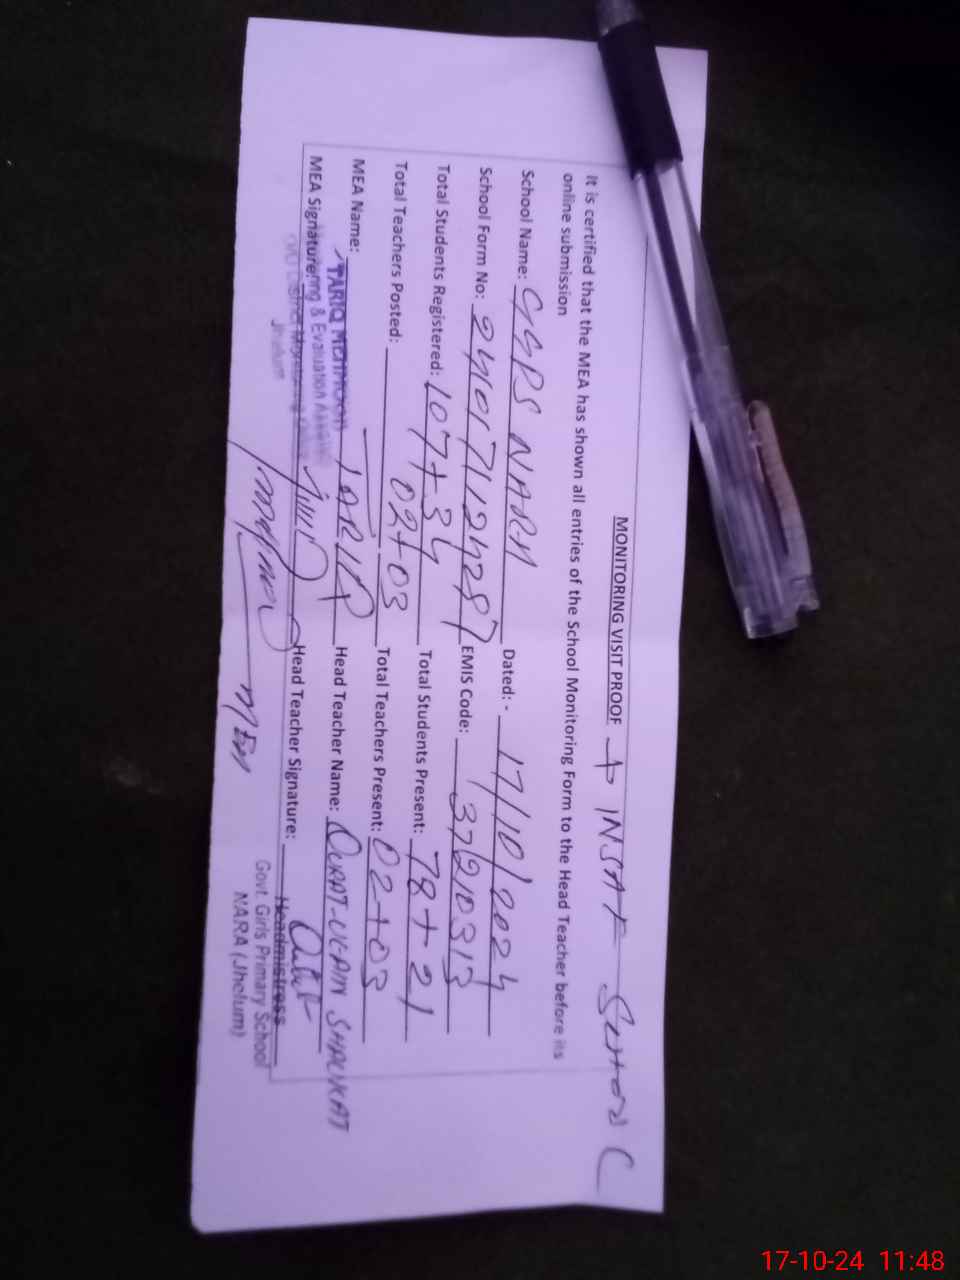 MONITORING VISIT PROOF → INSAF SCHOOL
It is certified that the MEA has shown all entries of the School Monitoring Form to the Head Teacher before its
online submission
School Name: GGPS NARA Dated: - 17/10/2024
School Form No: EMIS Code: 37210313
Total Students Registered: 107+34 Total Students Present: 78+21
Total Teachers Posted: 02+03 Total Teachers Present: 02+03
MEA Name: TARIQ Head Teacher Name: QURAT-UL-AIN SHAUKAT
TARIQ MEHMOOD
MEA Signature: Head Teacher Signature:
Monitoring & Evaluation Assistant
O/O District Monitoring Officer
Jhelum
MEA
Headmistress
Govt. Girls Primary School
NARA (Jhelum)
17-10-24 11:48